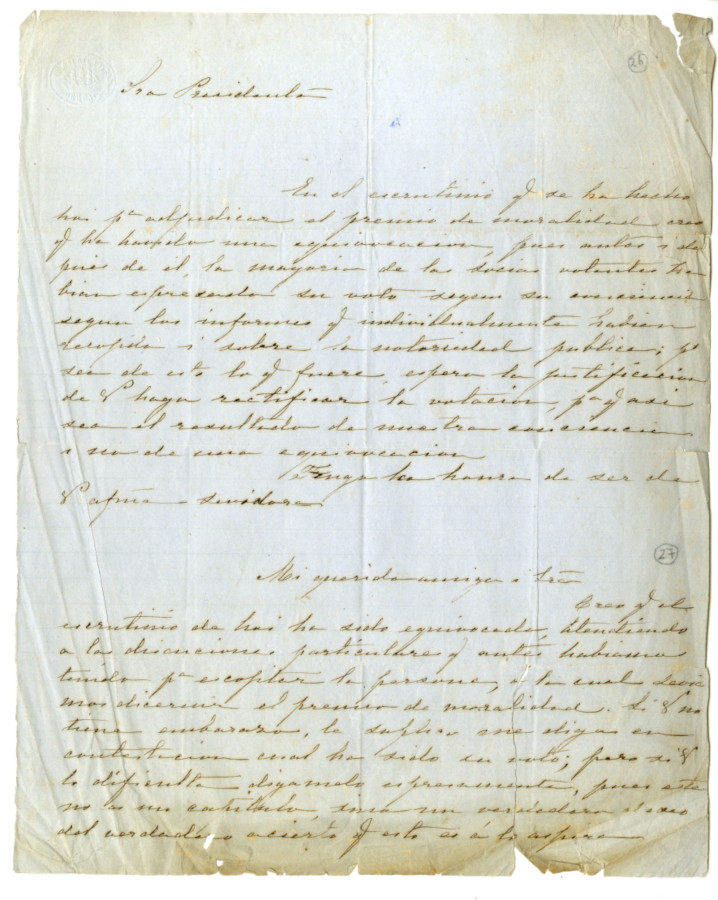 26
Sra Presidenta
En el escrutinio q se ha hecho
hai pa adjudicar el premio de moralidad creo
q ha havido una equivocacion, pues antes i des
pues de él, la mayoria de las socias votantes ha
bian espresado su voto segun su conciencia
segun los informes q individualmente habian
recogido i sobre la notoriedad publica; pa
sea de esto lo q fuere, espero la justificacion
de V haga rectificar la votacion, pa q asi
sea el resultado de nuestra conciencia
i no de una equivocacion
Tengo la honra de ser de
V afma servidora
27
Mi querida amiga i Sra
Creo q el
escrutinio de hai ha sido equivocado, atendiendo
a las discuciones particulares q antes habiamos
tenido pa escojter la persona, a la cual devia
mos dicernir el premio de moralidad. Si V no
tiene embarazo, le suplico me diga en
contestacion cual ha sido su voto; pero si V
lo dificulta digamelo espresamente, pues este
no es un sino un verdadero deseo
del verdadero acierto q esto es á lo aspiro